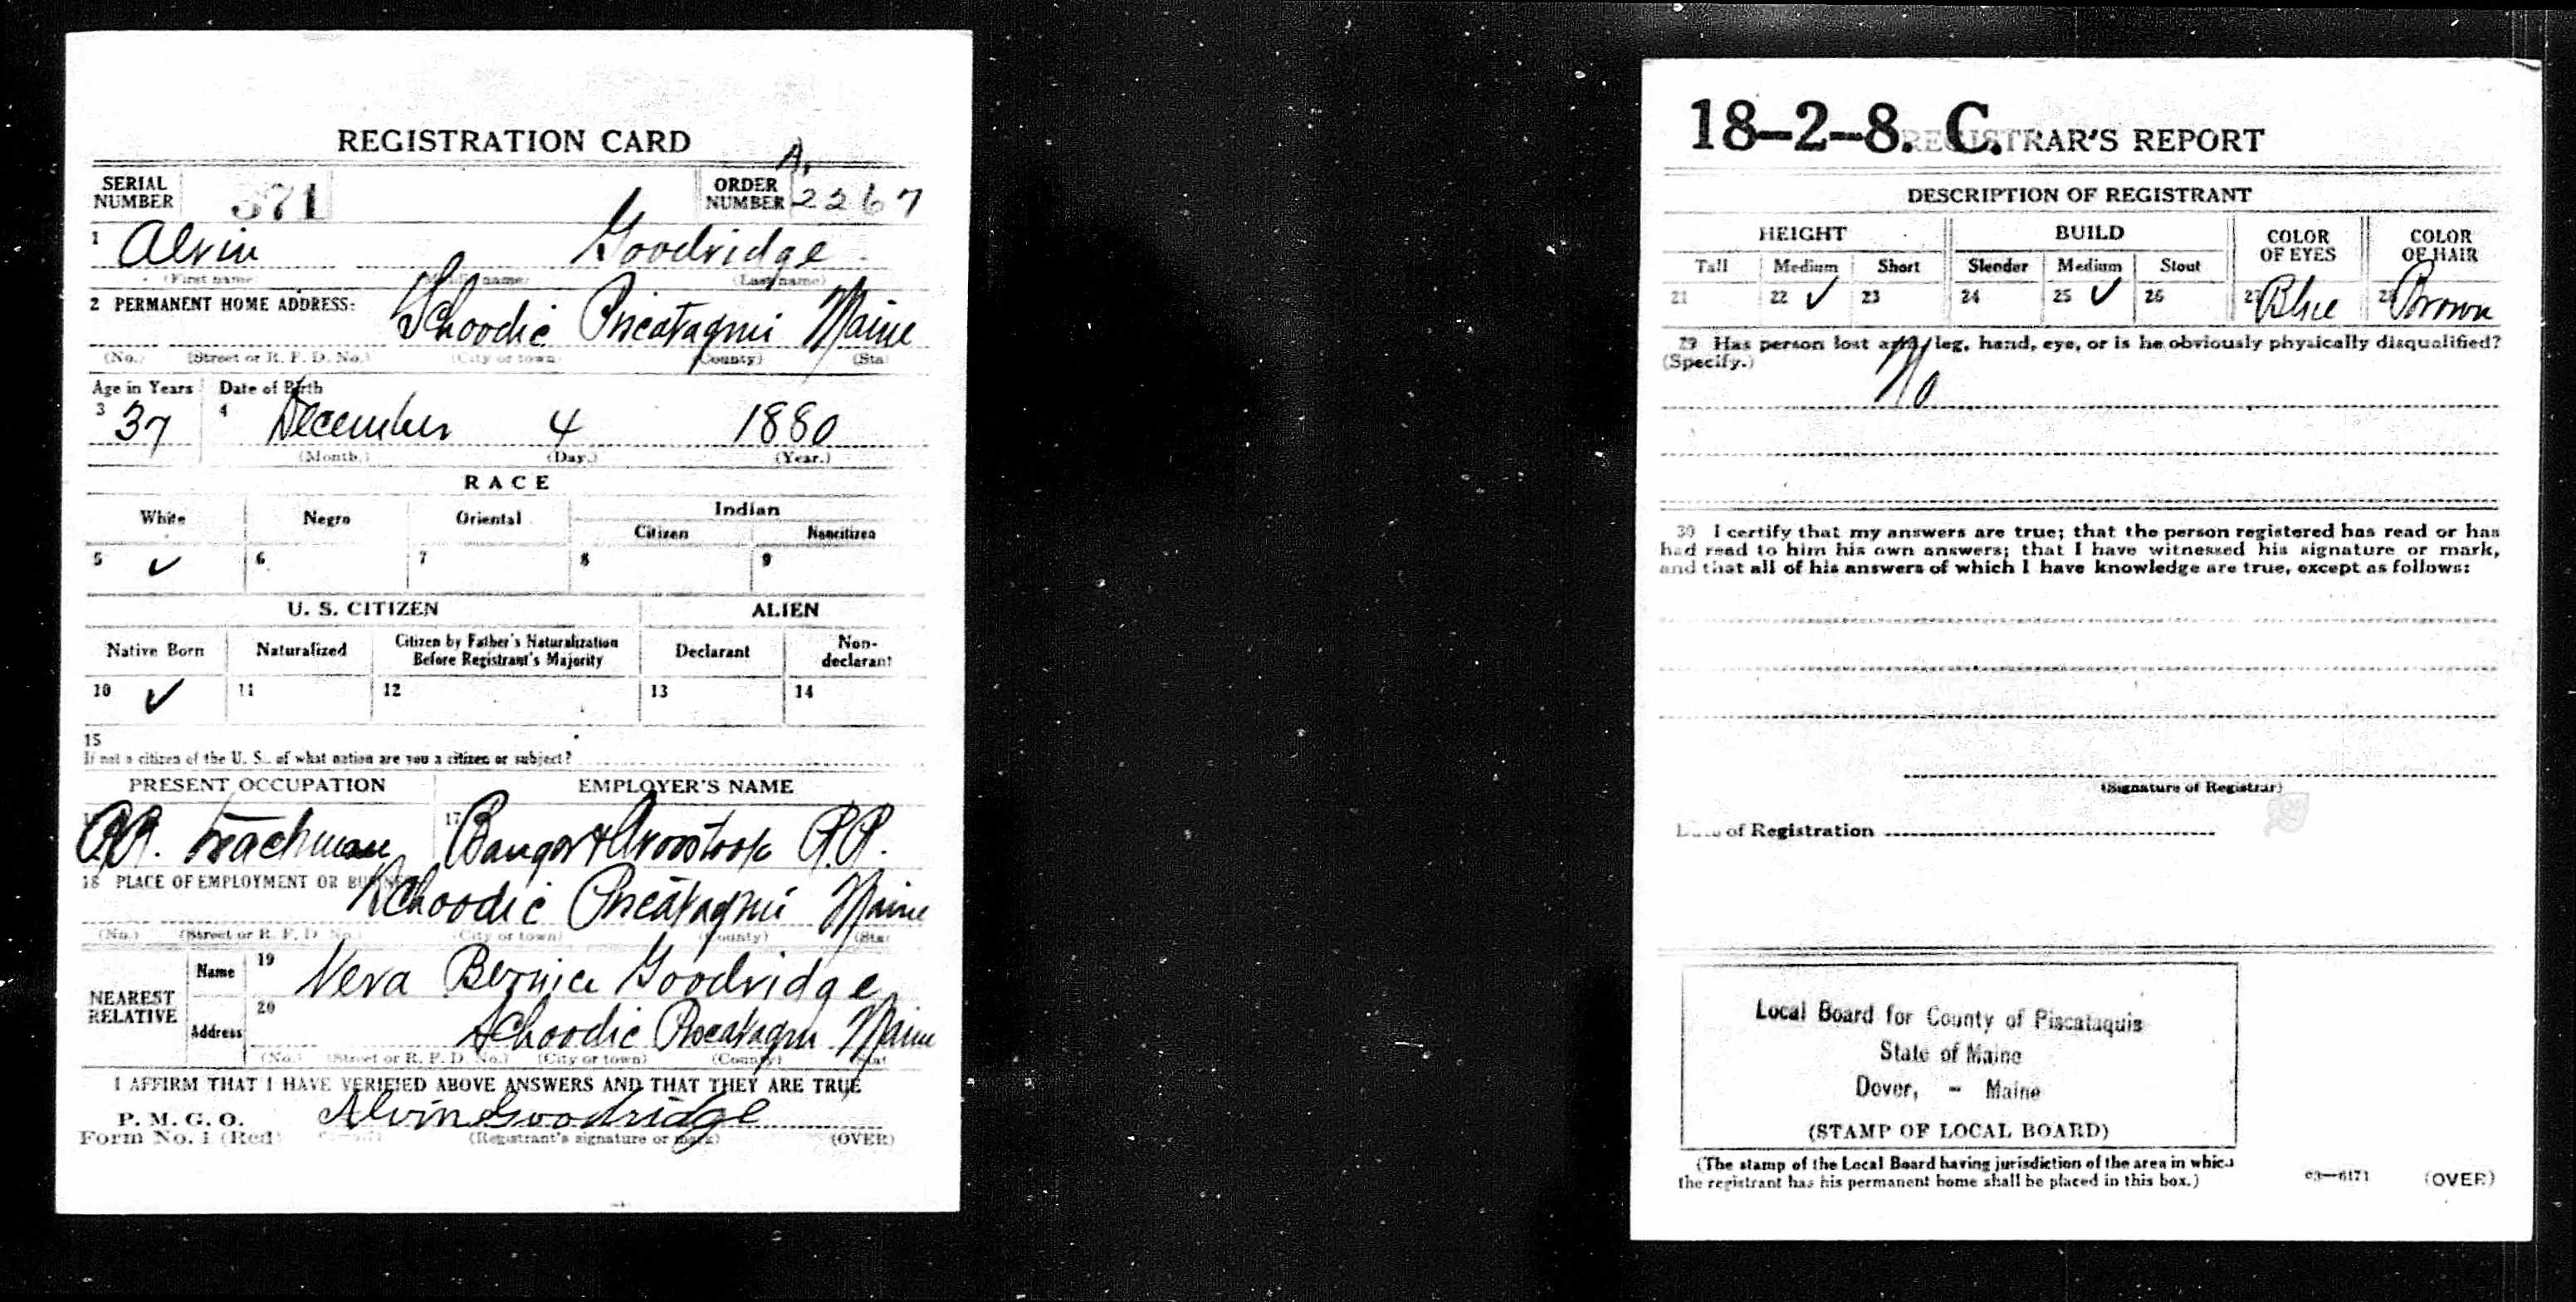 REGISTRATION CARD
SERIAL NUMBER 371 ORDER NUMBER A. 2267
1 Alvin Goodridge
(First name) (Last name)
2 PERMANENT HOME ADDRESS: Schoodic Piscataquis Maine
(No.) (Street or R. F. D. No.) (City or town) (County) (Sta
Age in Years Date of Birth
3 37 4 December 4 1880
(Month.) (Day.) (Year.)
RACE
White Negro Oriental Indian
Citizen Noncitizen
5 ✓ 6 7 8 9
U. S. CITIZEN ALIEN
Native Born Naturalized Citizen by Father's Naturalization Before Registrant's Majority Declarant Non-declarant
10 ✓ 11 12 13 14
15
If not a citizen of the U. S., of what nation are you a citizen or subject?
PRESENT OCCUPATION EMPLOYER'S NAME
R.R. trackman 17 Bangor & Aroostook R.R.
18 PLACE OF EMPLOYMENT OR BUSINESS
Schoodic Piscataquis Maine
(No.) (Street or R. F. D. No.) (City or town) (County) (Sta
NEAREST RELATIVE
Name 19 Vera Bernice Goodridge
Address 20 Schoodic Piscataquis Maine
(No.) (Street or R. F. D. No.) (City or town) (County) Stat
I AFFIRM THAT I HAVE VERIFIED ABOVE ANSWERS AND THAT THEY ARE TRUE
P. M. G. O.
Form No. 1 (Red) Alvin Goodridge
(Registrant's signature or mark) (OVER)
18-2-8. C. REGISTRAR'S REPORT
DESCRIPTION OF REGISTRANT
HEIGHT BUILD COLOR OF EYES COLOR OF HAIR
Tall Medium Short Slender Medium Stout
21 22 ✓ 23 24 25 ✓ 26 27 Blue 28 Brown
29 Has person lost arm, leg, hand, eye, or is he obviously physically disqualified?
(Specify.) No
30 I certify that my answers are true; that the person registered has read or has
had read to him his own answers; that I have witnessed his signature or mark,
and that all of his answers of which I have knowledge are true, except as follows:
(Signature of Registrar)
Date of Registration
Local Board for County of Piscataquis
State of Maine
Dover, - Maine
(STAMP OF LOCAL BOARD)
(The stamp of the Local Board having jurisdiction of the area in which
the registrant has his permanent home shall be placed in this box.)
03—6171 (OVER)